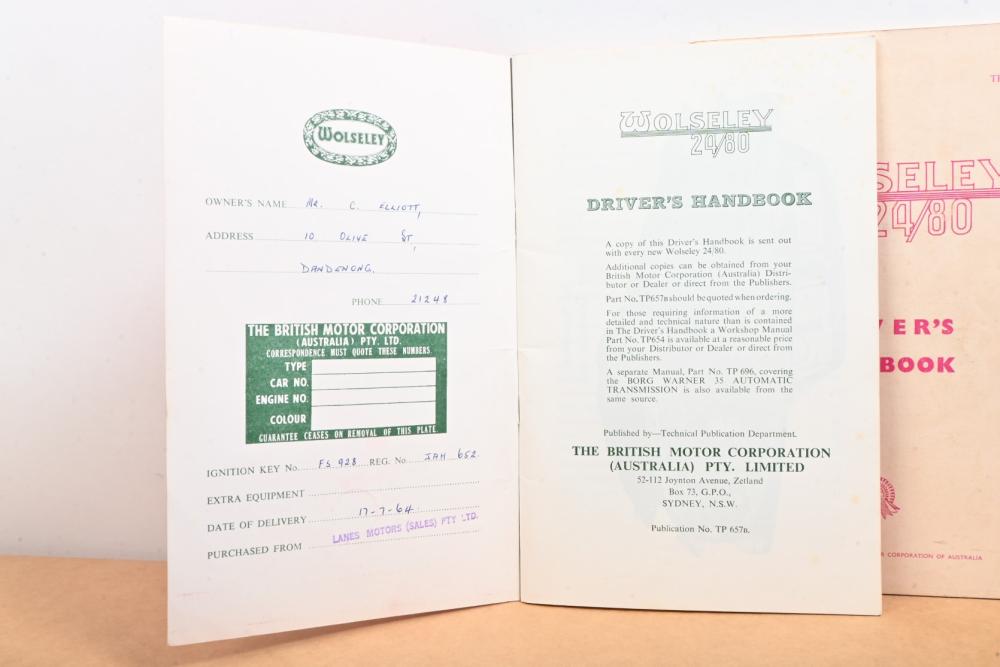 WOLSELEY
OWNER'S NAME Mr. C. ELLIOTT,
ADDRESS 10 OLIVE ST,
DANDENONG.
PHONE 21248
THE BRITISH MOTOR CORPORATION
(AUSTRALIA) PTY. LTD.
CORRESPONDENCE MUST QUOTE THESE NUMBERS.
TYPE
CAR NO.
ENGINE NO.
COLOUR
GUARANTEE CEASES ON REMOVAL OF THIS PLATE.
IGNITION KEY No. FS 928 REG. No. JAH 652.
EXTRA EQUIPMENT
DATE OF DELIVERY 17-7-64
PURCHASED FROM LANES MOTORS (SALES) PTY LTD.
WOLSELEY
24/80
DRIVER'S HANDBOOK
A copy of this Driver's Handbook is sent out
with every new Wolseley 24/80.
Additional copies can be obtained from your
British Motor Corporation (Australia) Distri-
butor or Dealer or direct from the Publishers.
Part No. TP657B should be quoted when ordering.
For those requiring information of a more
detailed and technical nature than is contained
in The Driver's Handbook a Workshop Manual
Part No. TP654 is available at a reasonable price
from your Distributor or Dealer or direct from
the Publishers.
A separate Manual, Part No. TP 696, covering
the BORG WARNER 35 AUTOMATIC
TRANSMISSION is also available from the
same source.
Published by—Technical Publication Department.
THE BRITISH MOTOR CORPORATION
(AUSTRALIA) PTY. LIMITED
52-112 Joynton Avenue, Zetland
Box 73, G.P.O.,
SYDNEY, N.S.W.
Publication No. TP 657B.
SELEY
24/80
VER'S
BOOK
CORPORATION OF AUSTRALIA